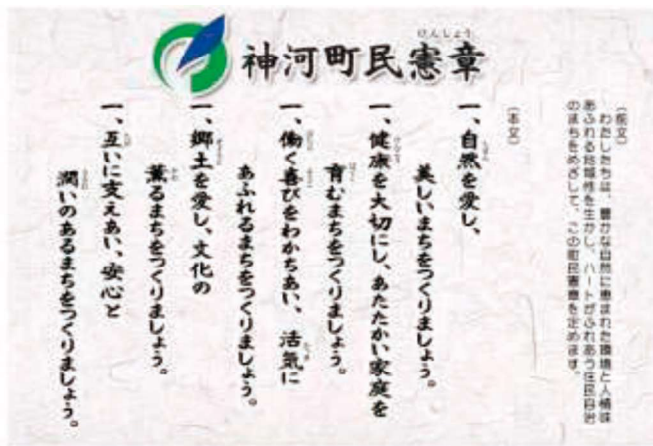 神河町民憲章
〔前文〕
わたしたちは、豊かな自然に恵まれた環境と人情味
あふれる地域性を生かし、ハートがふれあう住民自治
のまちをめざして、この町民憲章を定めます。
〔本文〕
一、自然を愛し、
美しいまちをつくりましょう。
一、健康を大切にし、あたたかい家庭を
育むまちをつくりましょう。
一、働く喜びをわかちあい、活気に
あふれるまちをつくりましょう。
一、郷土を愛し、文化の
薫るまちをつくりましょう。
一、互いに支えあい、安心と
潤いのあるまちをつくりましょう。